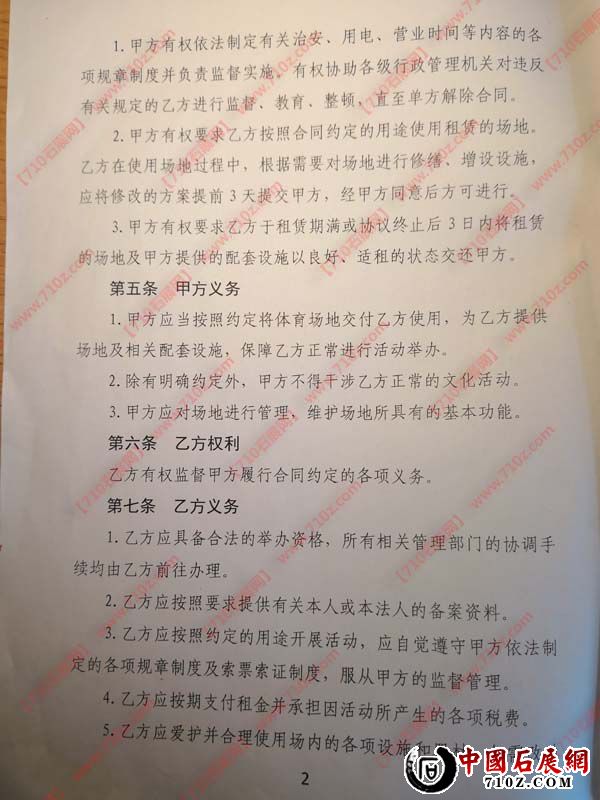 1.甲方有权依法制定有关治安、用电、营业时间等内容的各
项规章制度并负责监督实施。有权协助各级行政管理机关对违反
有关规定的乙方进行监督、教育、整顿，直至单方解除合同。
2.甲方有权要求乙方按照合同约定的用途使用租赁的场地。
乙方在使用场地过程中，根据需要对场地进行修缮、增设设施，
应将修改的方案提前3天提交甲方，经甲方同意后方可进行。
3.甲方有权要求乙方于租赁期满或协议终止后3日内将租赁
的场地及甲方提供的配套设施以良好、适租的状态交还甲方。
第五条 甲方义务
1.甲方应当按照约定将体育场地交付乙方使用，为乙方提供
场地及相关配套设施，保障乙方正常进行活动举办。
2.除有明确约定外，甲方不得干涉乙方正常的文化活动。
3.甲方应对场地进行管理，维护场地所具有的基本功能。
第六条 乙方权利
乙方有权监督甲方履行合同约定的各项义务。
第七条 乙方义务
1.乙方应具备合法的举办资格，所有相关管理部门的协调手
续均由乙方前往办理。
2.乙方应按照要求提供有关本人或本法人的备案资料。
3.乙方应按照约定的用途开展活动，应自觉遵守甲方依法制
定的各项规章制度及索票索证制度，服从甲方的监督管理。
4.乙方应按期支付租金并承担因活动所产生的各项税费。
5.乙方应爱护并合理使用场内的各项设施和
2
中國石展網
710Z.COM
【710石展网】
www.710z.com